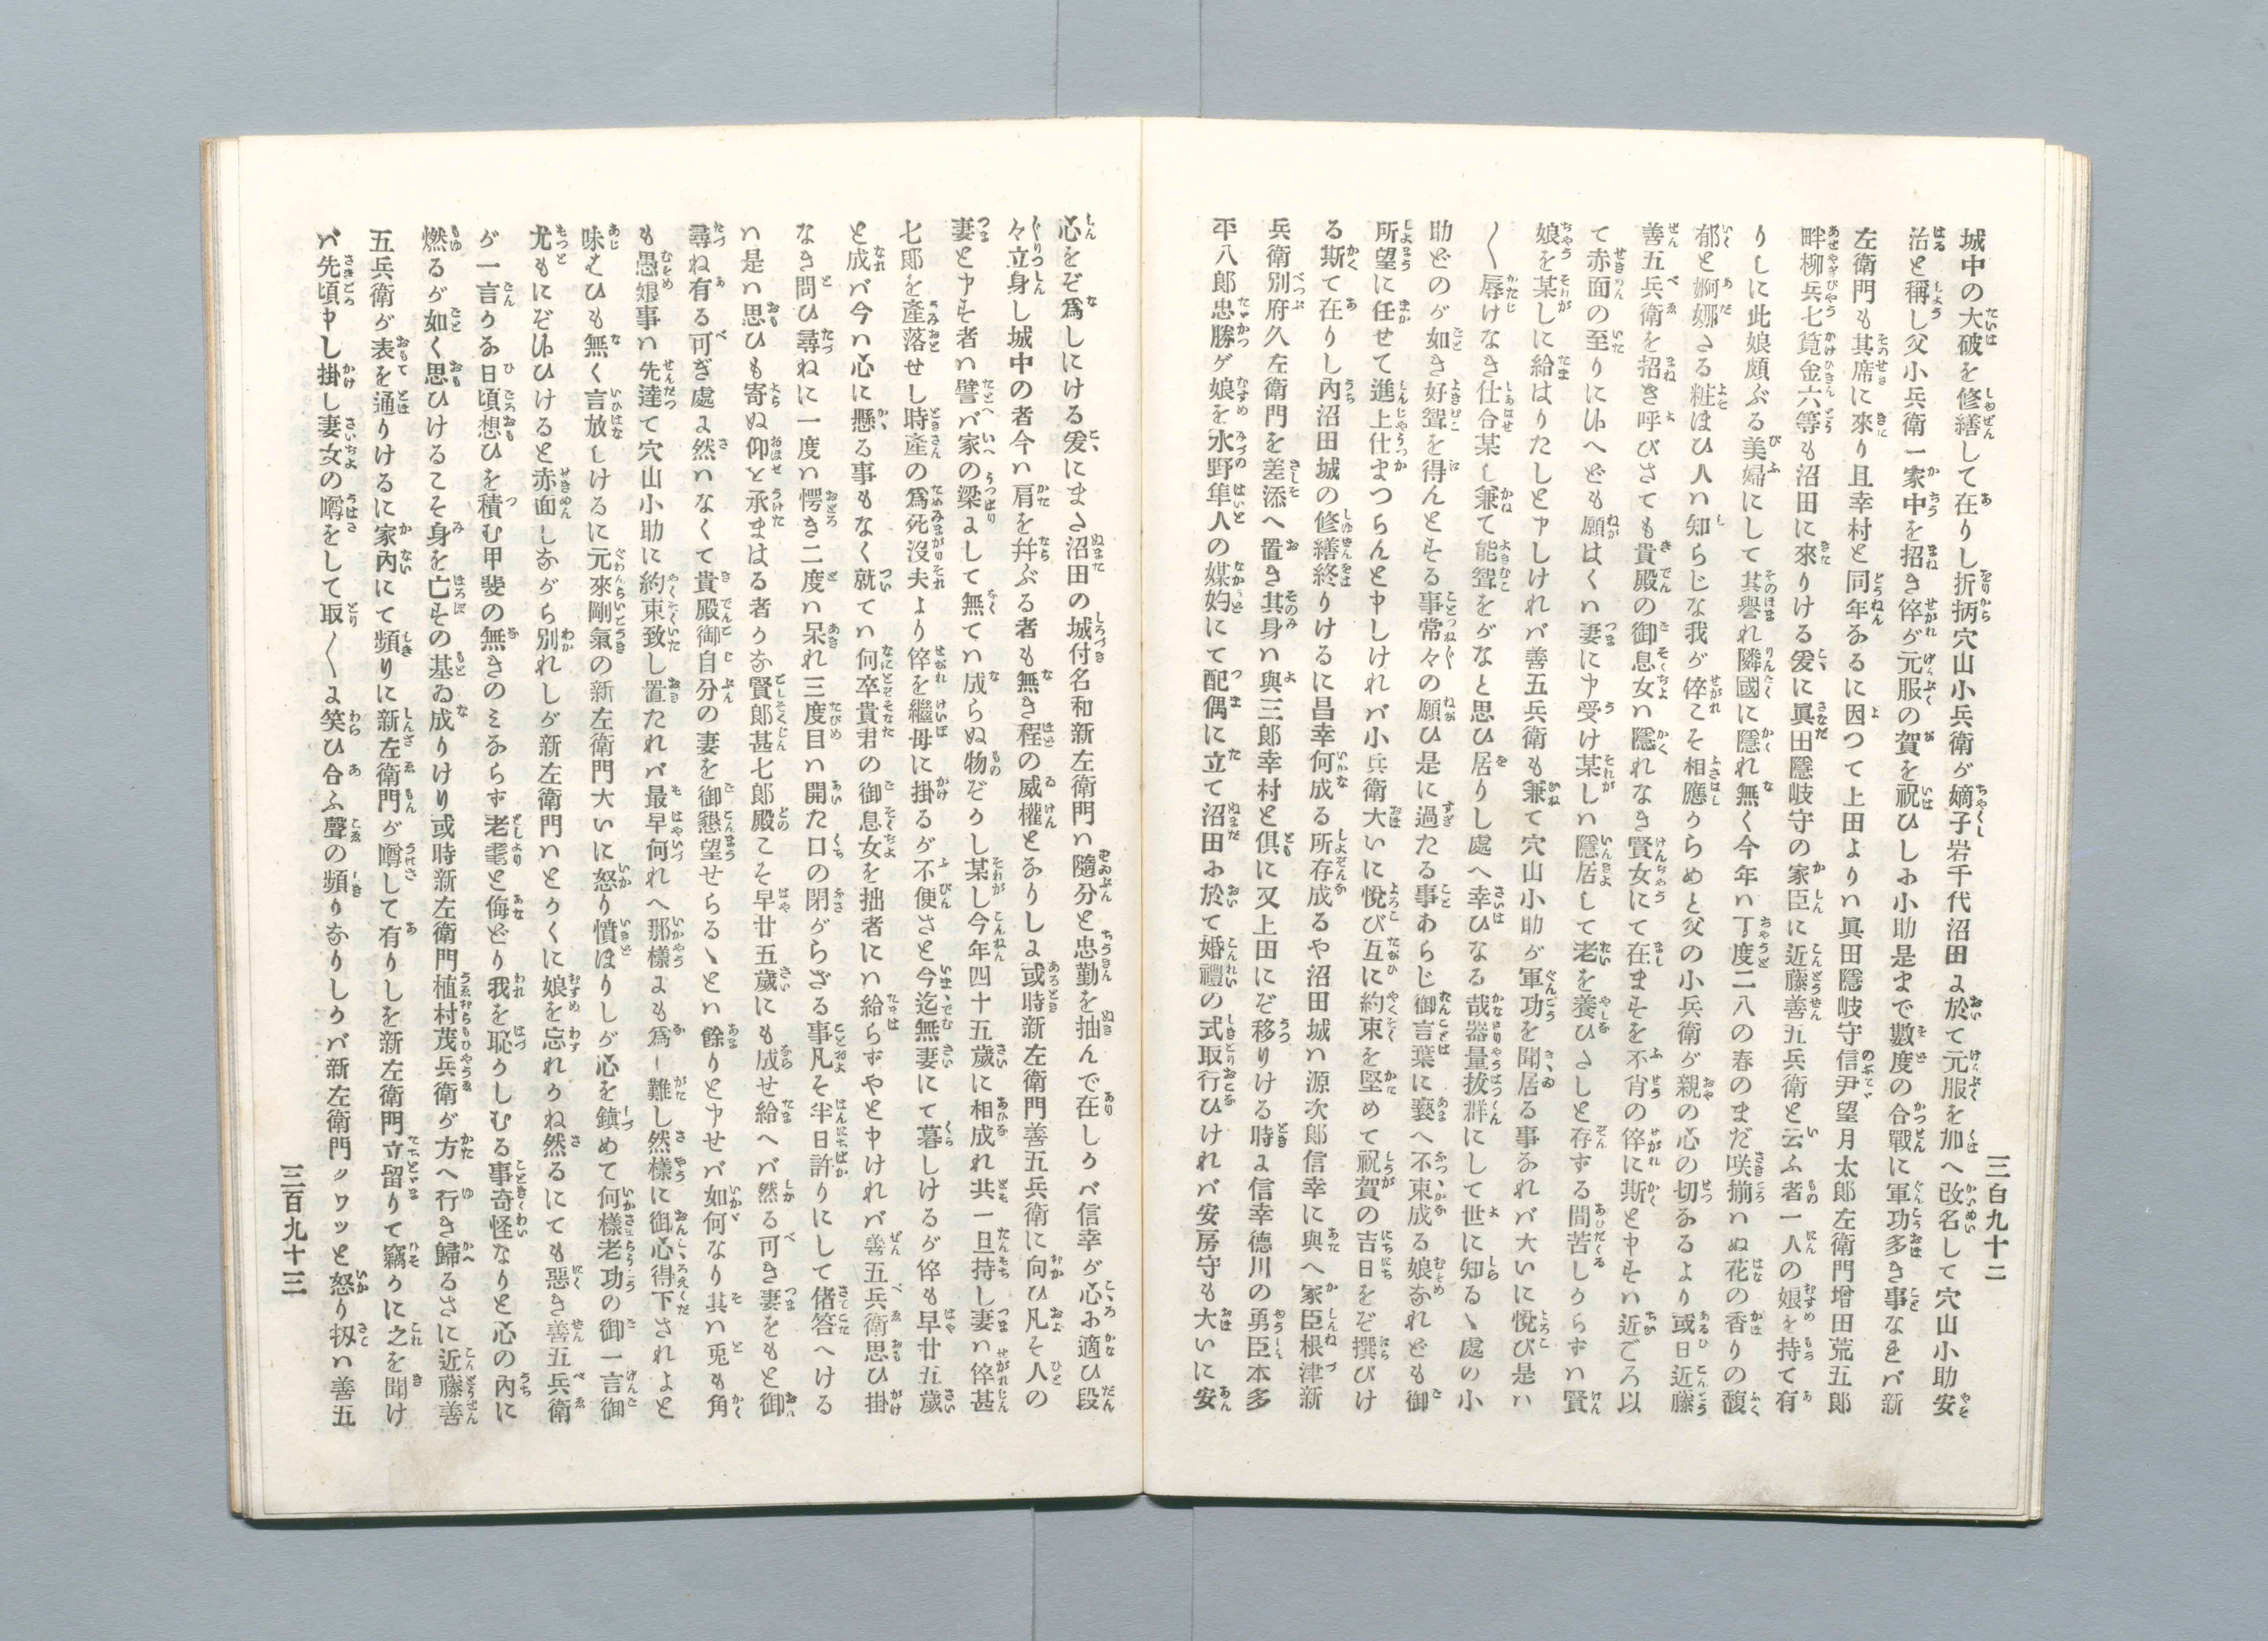 三百九十二
城中の大破を修繕して在りし折柄穴山小兵衛が嫡子岩千代沼田に於て元服を加へ改名して穴山小助安
治と稱し父小兵衛一家中を招き倅が元服の賀を祝ひしに小助是まで數度の合戰に軍功多き事なれば新
左衛門も其席に來り且幸村と同年なるに因つて上田よりハ眞田隱岐守信尹望月太郎左衛門增田荒五郎
畔柳兵七筧金六等も沼田に來りける爰に眞田隱岐守の家臣に近藤善五兵衛と云ふ者一人の娘を持て有
りしに此娘頗ぶる美婦にして其譽れ隣國に隱れ無く今年ハ丁度二八の春のまだ咲揃ハぬ花の香りの馥
郁と婀娜たる粧ほひ人ハ知らじな我が倅こそ相應からめと父の小兵衛が親の心の切なるより或日近藤
善五兵衛を招き呼びさても貴殿の御息女ハ隱れなき賢女にて在ますを不肖の倅に斯と申すハ近ごろ以
て赤面の至りに候へども願はくハ妻に申受け某しハ隱居して老を養ひたしと存ずる間苦しからずハ賢
娘を某しに給はりたしと申しければ善五兵衛も兼て穴山小助が軍功を聞居る事なれば大いに悅び是ハ
〱辱けなき仕合某し兼て能聟をがなと思ひ居りし處へ幸ひなる哉器量拔群にして世に知るゝ處の小
助どのが如き好聟を得んとする事常々の願ひ是に過たる事あらじ御言葉に甘へ不束成る娘なれども御
所望に任せて進上仕まつらんと申しければ小兵衛大いに悅び互に約束を堅めて祝賀の吉日をぞ撰びけ
る斯て在りし內沼田城の修繕終りけるに昌幸何成る所存成るや沼田城ハ源次郎信幸に與へ家臣根津新
兵衛別府久左衛門を差添へ置き其身ハ與三郎幸村と俱に又上田にぞ移りける時に信幸德川の勇臣本多
平八郎忠勝が娘を水野隼人の媒妁にて配偶に立て沼田に於て婚禮の式取行ひければ安房守も大いに安
心をぞ爲しにける爰にまた沼田の城付名和新左衛門ハ隨分と忠勤を抽んで在しかば信幸が心に適ひ段
々立身し城中の者今ハ肩を幷ぶる者も無き程の威權となりしに或時新左衛門善五兵衛に向ひ凡そ人の
妻と申す者ハ譬ば家の梁にして無てハ成らぬ物ぞかし某し今年四十五歲に相成れ共一旦持し妻ハ倅甚
七郎を產落せし時產の爲死沒夫より倅を繼母に掛るが不便さと今迄無妻にて暮しけるが倅も早廿五歲
と成れば今ハ心に懸る事もなく就てハ何卒貴君の御息女を拙者にハ給らずやと申ければ善五兵衛思ひ掛
なき問ひ尋ねに一度ハ愕き二度ハ呆れ三度目ハ開た口の閉がらざる事凡そ半日許りにして偖答へける
ハ是ハ思ひも寄ぬ仰と承まはる者かな賢郎甚七郎殿こそ早廿五歲にも成せ給へば然る可き妻をもと御
尋ね有る可ぎ處に然ハなくて貴殿御自分の妻を御懇望せらるゝとハ餘りと申せば如何なり其ハ兎も角
も愚娘事ハ先達て穴山小助に約束致し置たれば最早何れへ那樣にも爲し難し然樣に御心得下されよと
味はひも無く言放しけるに元來剛氣の新左衛門大いに怒り憤ほりしが心を鎭めて何樣老功の御一言御
尤もにぞ候ひけると赤面しながら別れしが新左衛門ハとかくに娘を忘れかね然るにても惡き善五兵衛
が一言かな日頃想ひを積む甲斐の無きのみならず老耄と侮どり我を恥かしむる事奇怪なりと心の內に
燃るが如く思ひけるこそ身を亡すの基ゐ成りけり或時新左衛門植村茂兵衛が方へ行き歸るさに近藤善
五兵衛が表を通りけるに家內にて頻りに新左衛門が噂して有りしを新左衛門立留りて竊かに之を聞け
ば先頃申し掛し妻女の噂をして取〱に笑ひ合ふ聲の頻りなりしかば新左衛門クワッと怒り扨ハ善五
三百九十三